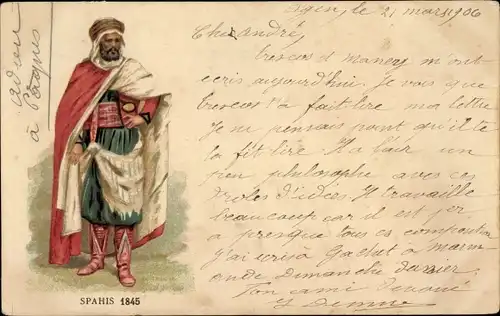 adieu
à Pâques
Agen, le 21 mars 1906
Cher André,
Crescos d Maney m'ont
ecris aujourd'hui. Je vois que
t'a fait lire ma lettre
Je ne pensais point qu'il te
la fit lire. Il a l'air un
peu philosophe avec ces
droles d'idées. Il travaille
beaucoup car il est 1er
a presque tous ces composition
J'ai écris à Gachet à Marm
onde dimanche dernier.
Ton ami dévoué
SPAHIS 1845